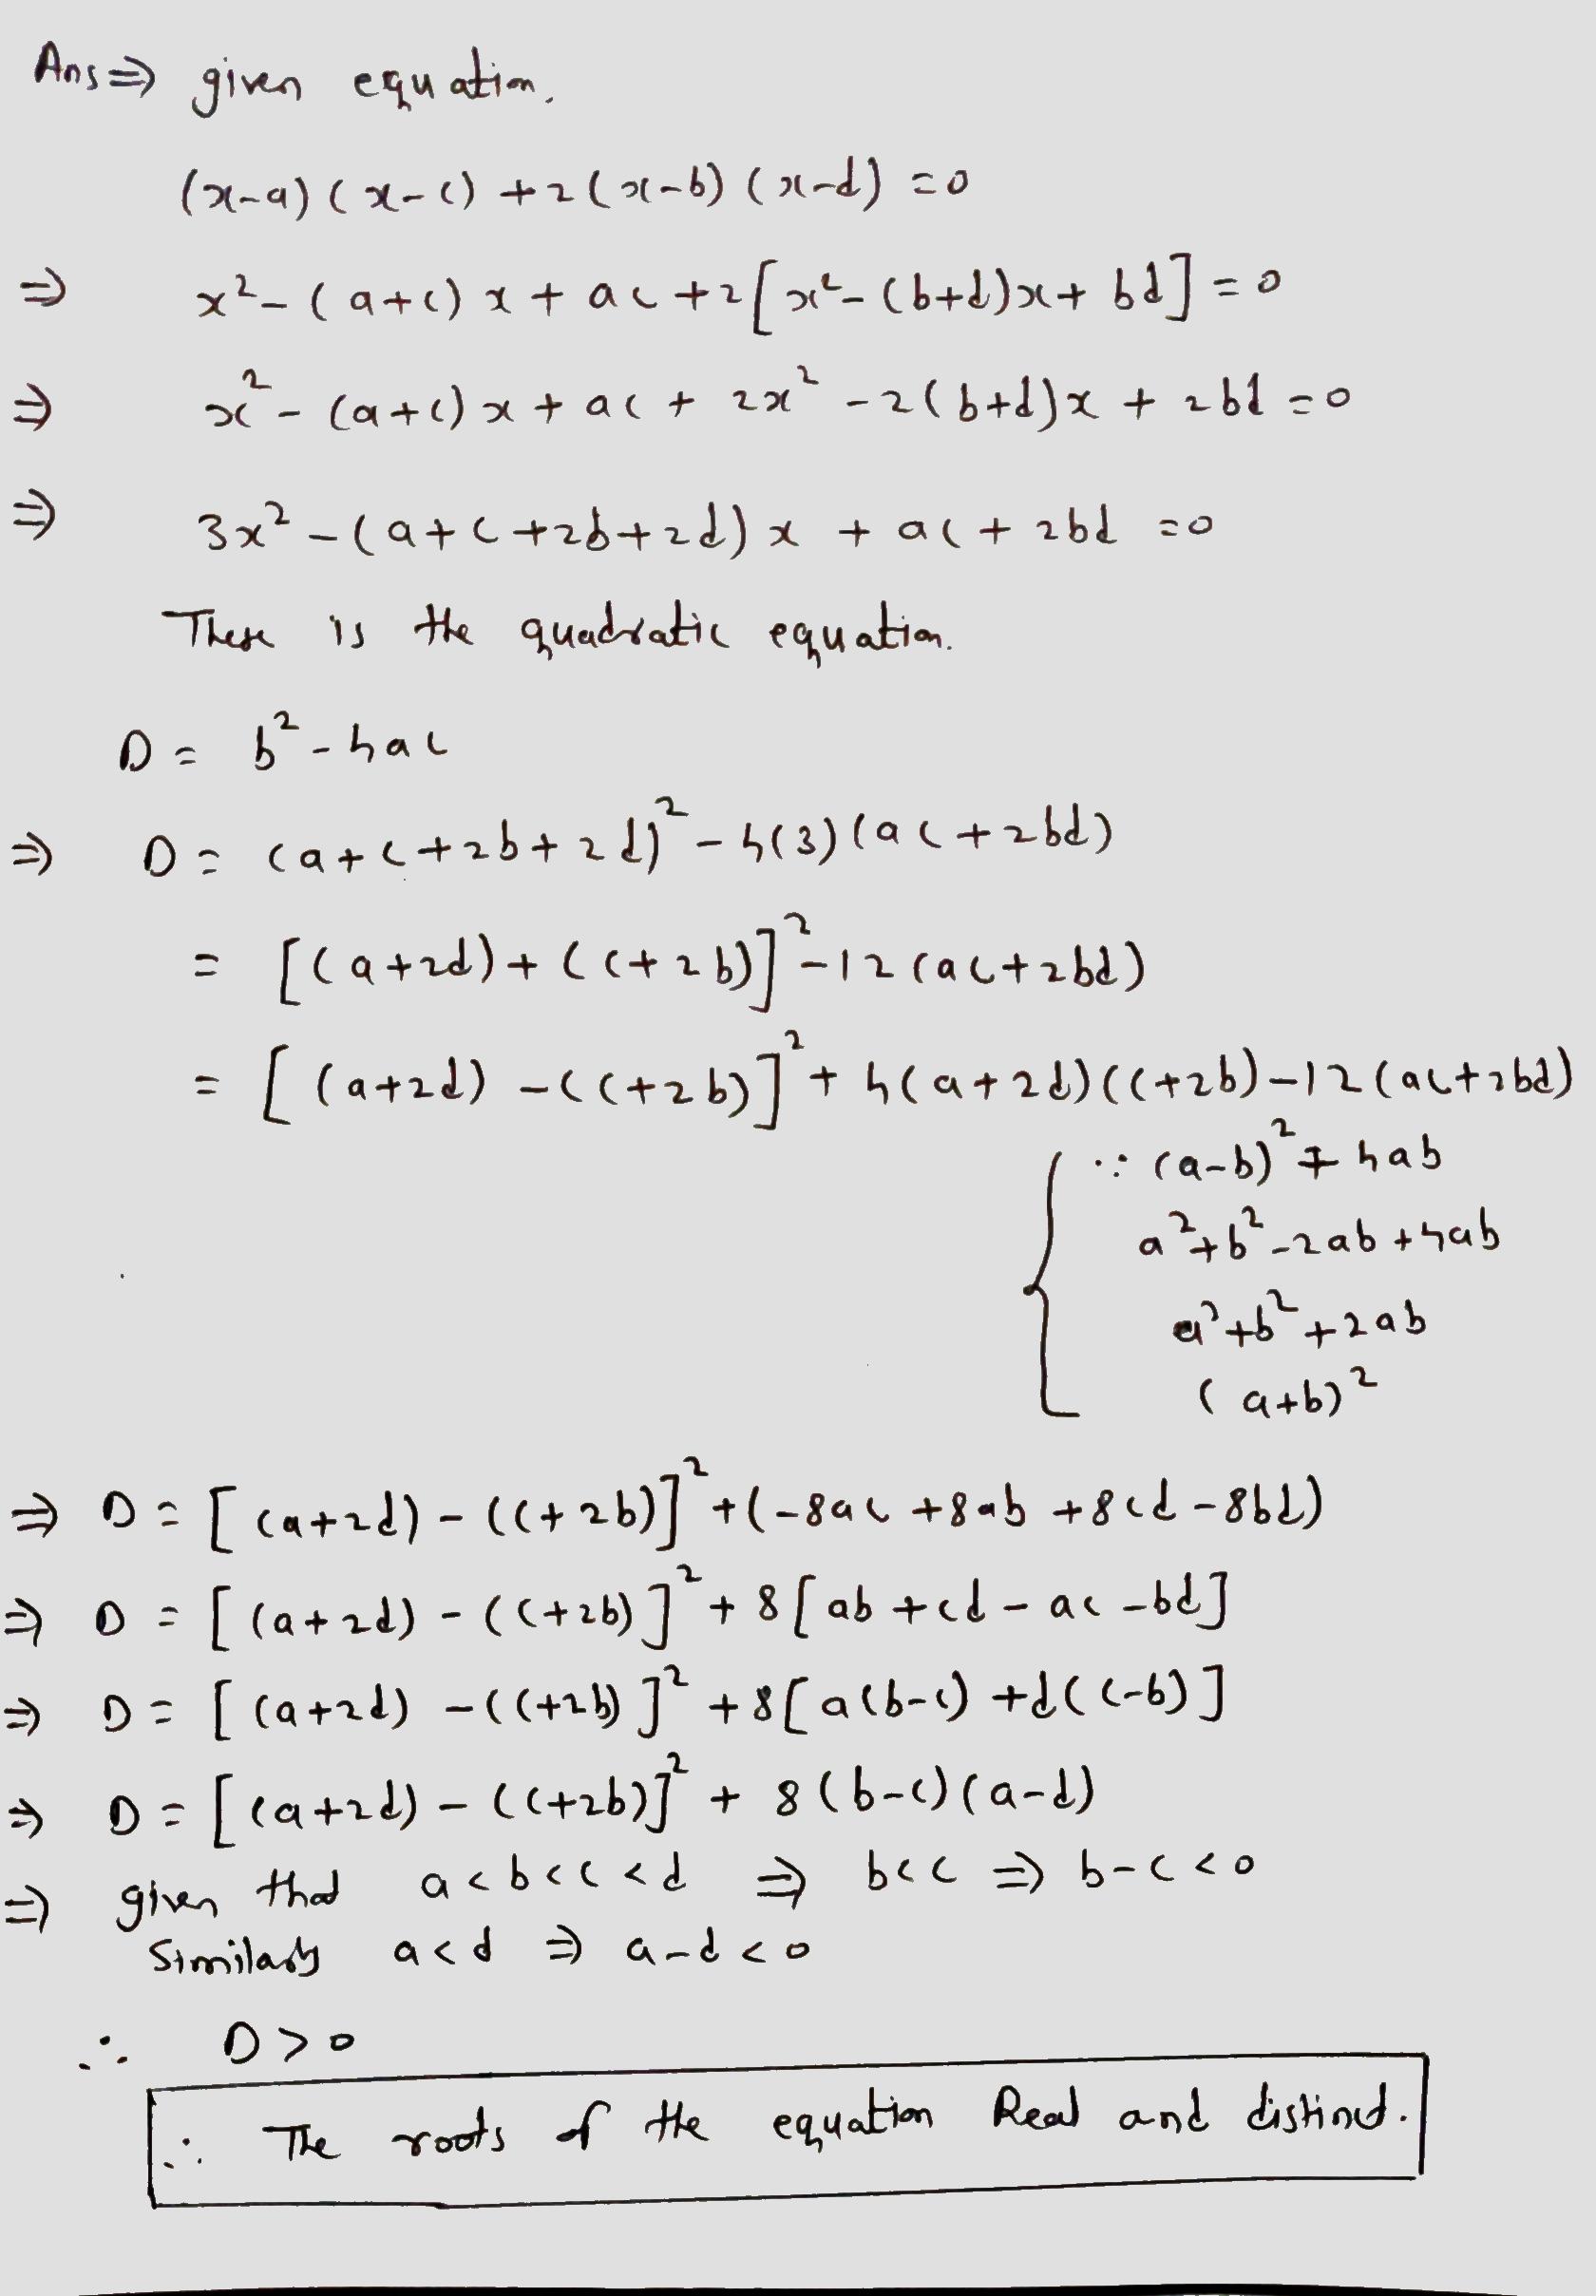 Ans ⇒ given equation.
(x-a)(x-c) +2(x-b)(x-d) =0
⇒ x²-(a+c)x + ac +2[x²-(b+d)x+ bd] =0
⇒ x²-(a+c)x + ac + 2x² -2(b+d)x + 2bd =0
⇒ 3x² -(a+c+2b+2d)x + ac+ 2bd =0
These is the quadratic equation.
D = b²-4ac
⇒ D = (a+c+2b+2d)² -4(3)(ac+2bd)
= [(a+2d)+(c+2b)]² -12(ac+2bd)
= [(a+2d) -(c+2b)]² + 4(a+2d)(c+2b)-12(ac+2bd)
∵ (a-b)² + 4ab
a²+b²-2ab+4ab
a²+b²+2ab
(a+b)²
⇒ D = [(a+2d) - (c+2b)]² +(-8ac +8ab +8cd -8bd)
⇒ D = [(a+2d) - (c+2b)]² + 8[ab +cd - ac -bd]
⇒ D = [(a+2d) -(c+2b)]² +8[a(b-c) +d(c-b)]
⇒ D = [(a+2d) - (c+2b)]² + 8(b-c)(a-d)
⇒ given that a<b<c<d ⇒ b<c ⇒ b-c<0
Similarly a<d ⇒ a-d<0
∴ D>0
∴ The roots of the equation Real and distinct.